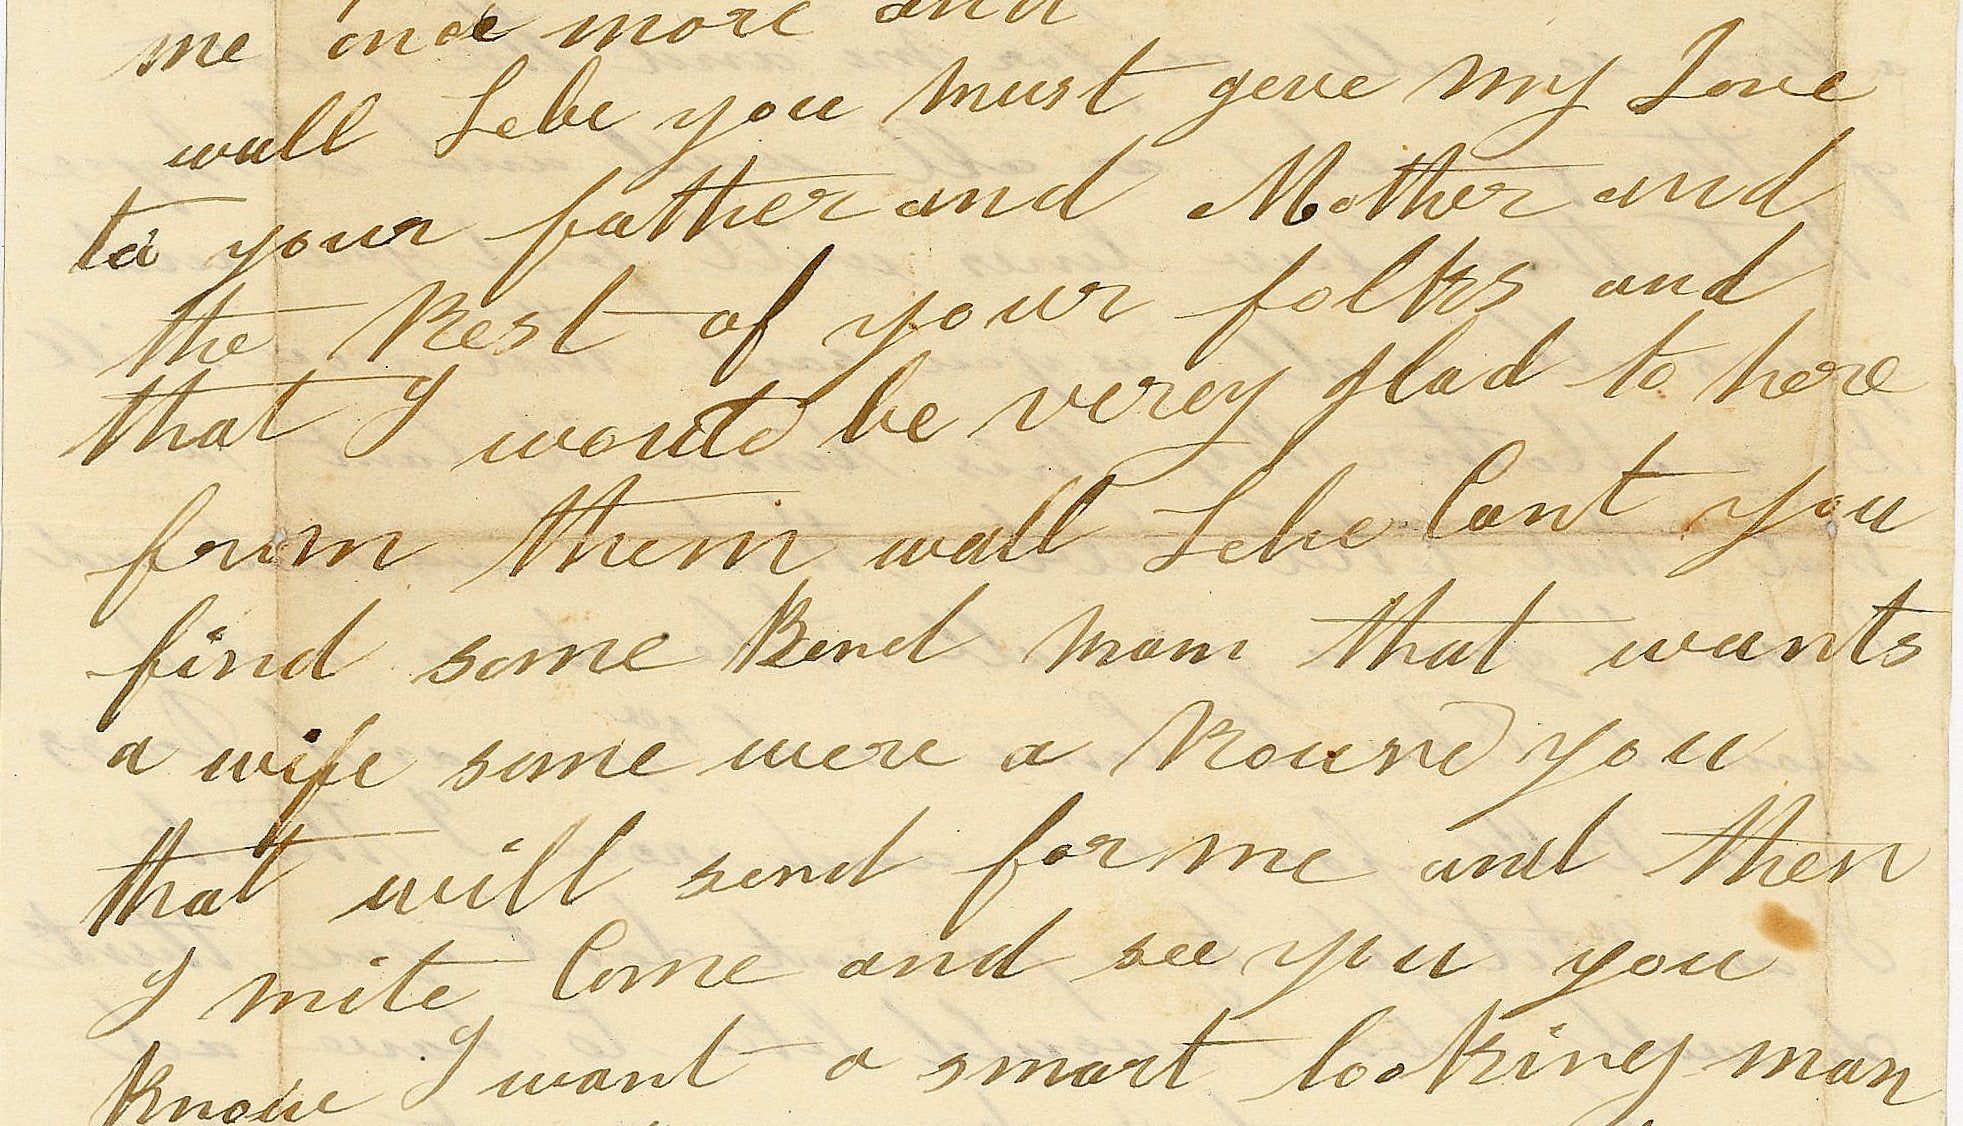 me once more and
wall Lebe you must geve my Love
to your father and Mother and
the Rest of your folks and
that I would be verey glad to here
from them wall Lebe Cant you
find some Kend mam that wants
a wife some were a Round you
that will send for me and then
I mite Come and see you you
know I want a smart looking man